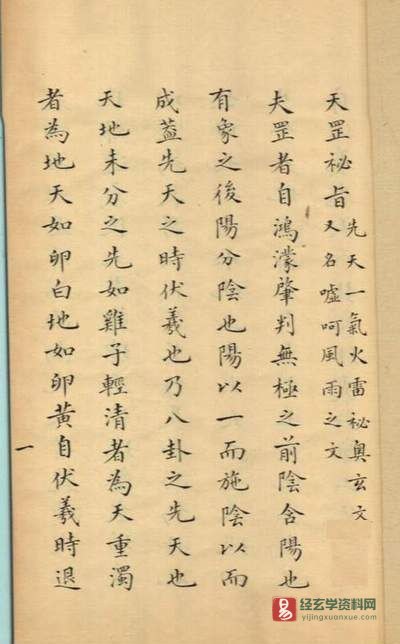 天罡祕旨
先天一氣火雷祕奧玄文
又名噓呵風雨之文
夫罡者自鴻濛肇判無極之前陰含陽也
有象之後陽分陰也陽以一而施陰以而
成葢先天之時伏羲也乃八卦之先天也
天地未分之先如雞子輕清者為天重濁
者為地天如卵白地如卵黃自伏羲時退
一
易 经玄学资料网
yijingxuanxue.com